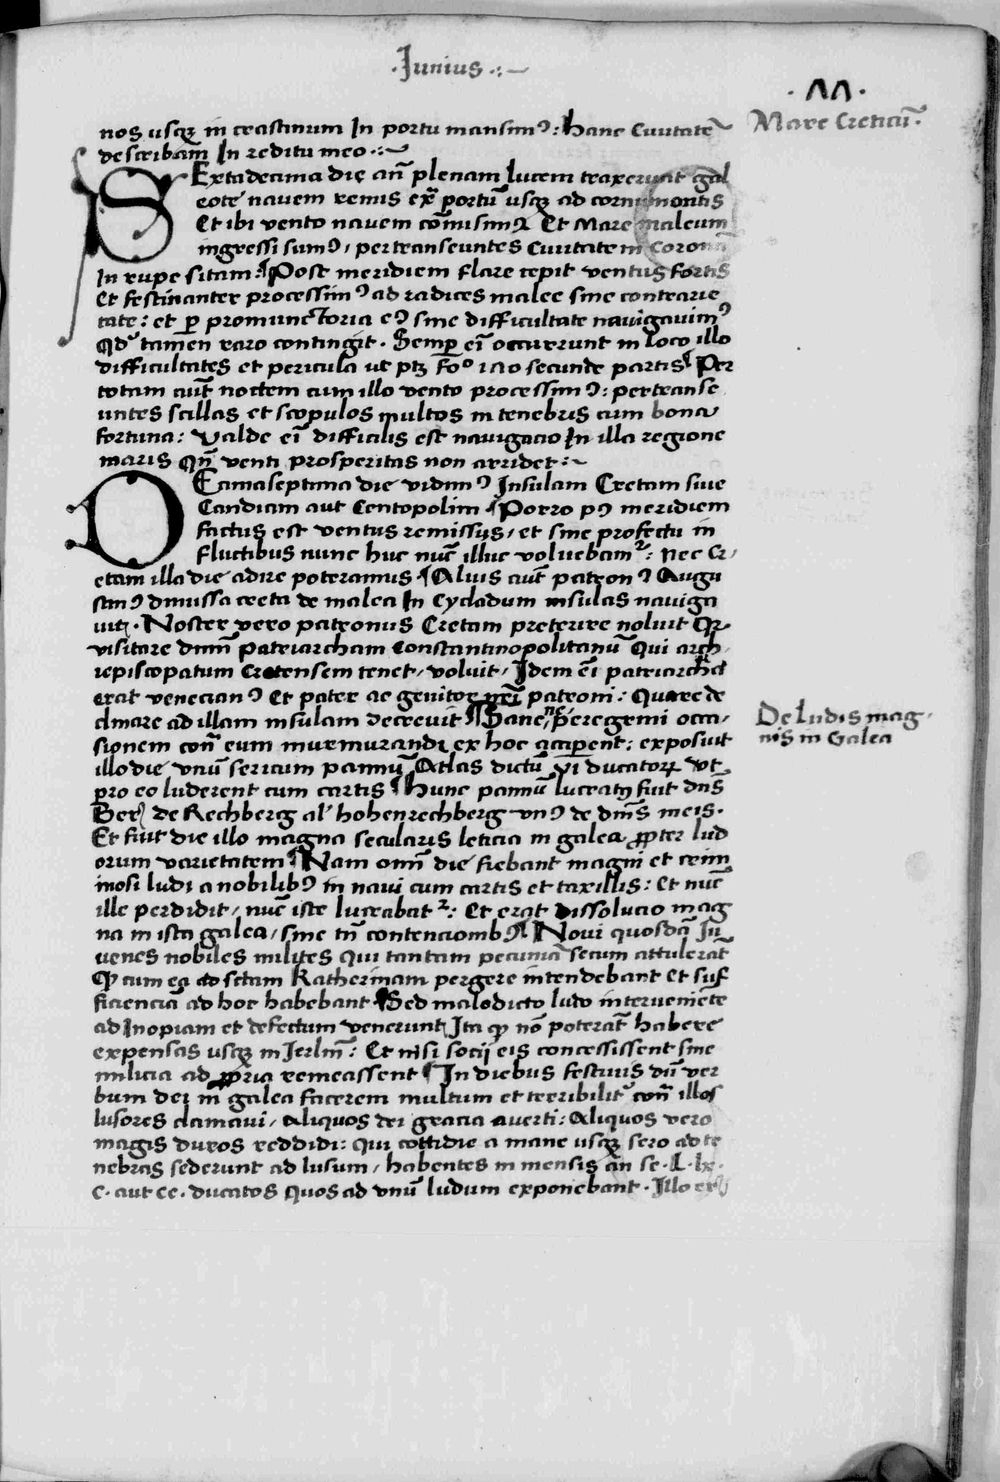 ·Junius·:~
·ΛΛ·
nos usqȝ in crastinum In portu mansimꝰ: hanc Civitatē
Mare Creticū·
describam In reditu meo·:~
SExtadecima die an̄ plenam lucem traxerunt gal
eote navem remis ex̄ portū usqȝ ad cornu montis
Et ibi vento navem cōmisimꝰ Et Mare maleum
ingressi sumꝰ, pertranseuntes Civitatem Corona
In rupe sitam: Post meridiem flare cepit ventus fortis
Et festinanter processimꝰ ad radices malee sine contrarie
tate: et ꝑ promunctoria eꝰ sine difficultate navigavimꝰ
Qđ tamen raro contingit· Semꝑ ei̅ occurrunt in loco illo
difficultates et pericula ut ptȝ fo° 120 secunde partis Per
totam aut̄ noctem cum illo vento processimꝰ: pertranse
untes scillas et scopulos multos in tenebris cum bona
fortuna: valde ei̅ difficilis est navigacio In illa regione
maris Qn̄ venti prosperitas non arridet:~
DEcimaseptima die vidimꝰ Insulam Cretam sive
Candiam aut Centopolim Porro pꝰ meridiem
factus est ventus remissus, et sine profectu in
fluctibus nunc huc nūc illuc volvebamr: Nec Cr,
etam illa die adire poteramus· Alius aut̄ patronꝰ Augu
stinꝰ dimissa creta de malea In Cycladum insulas naviga
vit· Noster vero patronus Cretam preterire noluit Qr
visitare dnm̄ Patriarcham Constantinopolitanū Qui arch,
iepiscopatum Cretensem tenet, voluit, Idem ei̅ patriarcha
erat venecianꝰ Et pater ac genitor nr̄i patroni: Quare de
clinare ad illam insulam decrevit Sane, ne peregrini occa,
De ludis mag,
sionem con̄ eum murmurandi ex hoc acciperent: exposuit
nis in Galea
illo die unū sericum pannū Atlas dictū VI ducatorꝝ ut
pro eo luderent cum cartis Hunc pannū lucratꝰ fuit dn̄s
Ber de Rechberg al' hohenrechberg unꝰ de dm̄s meis·
Et fuit die illo magna secularis leticia in galea ꝓpter lud
orum varietatem Nam omī die fiebant magni et crimi
nosi ludi a nobilibꝰ in navi cum cartis et taxillis: Et nūc
ille perdidit, nūc iste lucrabatr: Et erat dissolucio mag
na in ista galea, sine tn̄ contencionibꝰ Novi quosdā Ju
venes nobiles milites Qui tantam pecuniā secum attulerāt
Qp cum ea ad sctam Katherinam pergere intendebant et suf
ficienciā ad hoc habebant Sed maledicto ludo interveniēte
ad Inopiam et defectum venerunt, Ita qp nō poterāt habere
expensas usqȝ in Jerlm̄: Et nisi socij eis concessissent sine
milicia ad ꝓpria remeassent In diebus festivis dū ver
bum dei in galea facerem multum et terribilitr con̄ illos
lusores clamavi, Aliquos dei gracia averti: Aliquos vero
magis duros reddidi: qui cottidie a mane usqȝ sero ad te
nebras sederunt ad lusum, habentes in mensis an̄ se·L·lx·
c·aut cc·ducatos Quos ad unū ludum exponebant·Illo er